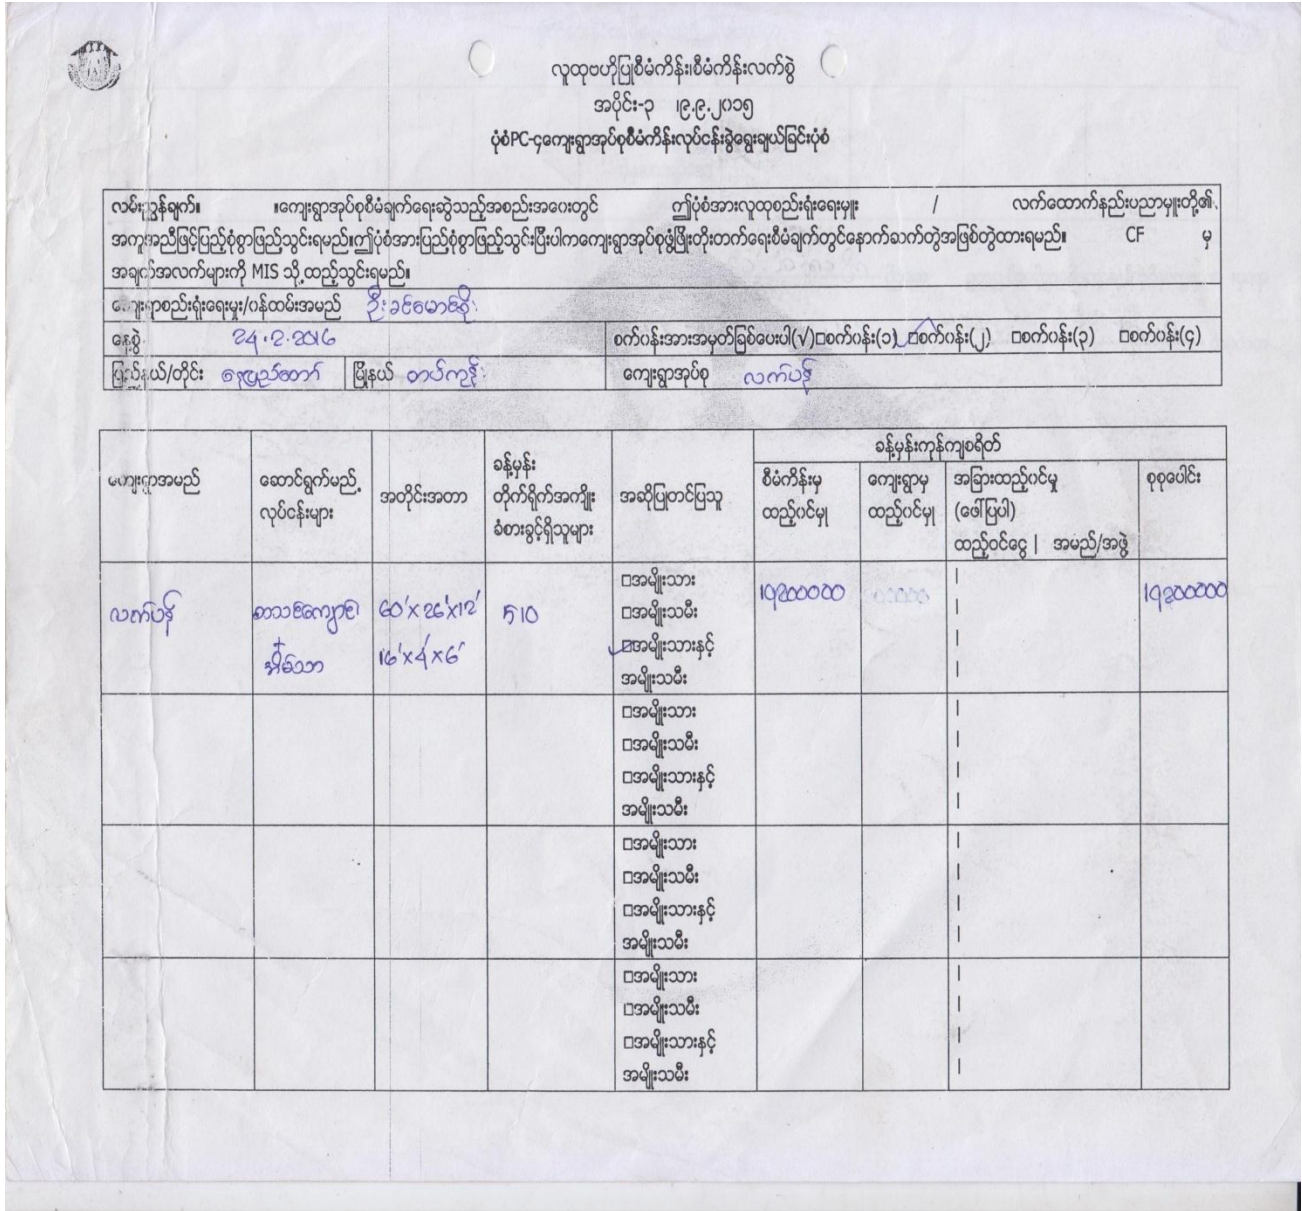 လူထုဗဟိုပြုစီမံကိန်း၊စီမံကိန်းလက်စွဲ
အပိုင်း-၃ ၊၉.၉.၂၀၁၅
ပုံစံPC-၄ကျေးရွာအုပ်စုစီမံကိန်းလုပ်ငန်းခွဲရွေးချယ်ခြင်းပုံစံ
လမ်းညွှန်ချက်။ ။ကျေးရွာအုပ်စုစီမံချက်ရေးဆွဲသည့်အစည်းအဝေးတွင် ဤပုံစံအားလူထုစည်းရုံးရေးမှူး / လက်ထောက်နည်းပညာမှူးတို့၏
အကူအညီဖြင့်ပြည့်စုံစွာဖြည့်သွင်းရမည်။ဤပုံစံအားပြည့်စုံစွာဖြည့်သွင်းပြီးပါကကျေးရွာအုပ်စုဖွံ့ဖြိုးတိုးတက်ရေးစီမံချက်တွင်နောက်ဆက်တွဲအဖြစ်တွဲထားရမည်။ CF မှ
အချက်အလက်များကို MIS သို့ ထည့်သွင်းရမည်။
ကျေးရွာစည်းရုံးရေးမှူး/ဝန်ထမ်းအမည် ဦးခင်မောင်စိုး
နေ့စွဲ 24.2.2016 စက်ဝန်းအားအမှတ်ခြစ်ပေးပါ(√)□စက်ဝန်း(၁) □စက်ဝန်း(၂) □စက်ဝန်း(၃) □စက်ဝန်း(၄)
ပြည်နယ်/တိုင်း နေပြည်တော် မြို့နယ် တပ်ကုန်း ကျေးရွာအုပ်စု လက်ပန်
ခန့်မှန်းကုန်ကျစရိတ်
ကျေးရွာအမည် ဆောင်ရွက်မည့် လုပ်ငန်းများ အတိုင်းအတာ ခန့်မှန်း တိုက်ရိုက်အကျိုး ခံစားခွင့်ရှိသူများ အဆိုပြုတင်ပြသူ စီမံကိန်းမှ ထည့်ဝင်မှု ကျေးရွာမှ ထည့်ဝင်မှု အခြားထည့်ဝင်မှု (ဖေါ်ပြပါ) ထည့်ဝင်ငွေ | အမည်/အဖွဲ့ စုစုပေါင်း
လက်ပန် စာသင်ကျောင်း 60'x26'x12' 510 □အမျိုးသား 19200000 19200000
□အမျိုးသမီး
+ အိမ်သာ 16'x4'x6' □အမျိုးသားနှင့်
အမျိုးသမီး
□အမျိုးသား
□အမျိုးသမီး
□အမျိုးသားနှင့်
အမျိုးသမီး
□အမျိုးသား
□အမျိုးသမီး
□အမျိုးသားနှင့်
အမျိုးသမီး
□အမျိုးသား
□အမျိုးသမီး
□အမျိုးသားနှင့်
အမျိုးသမီး